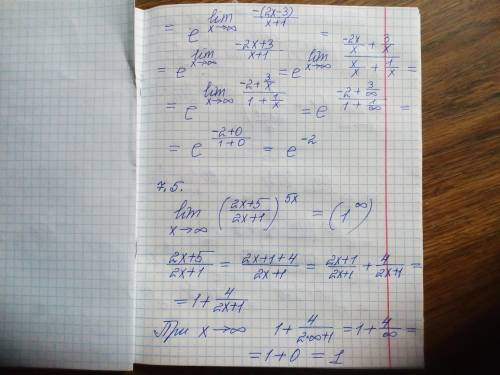 = e^{lim_{x→∞} \frac{-(2x-3)}{x+1}} =
= e^{lim_{x→∞} \frac{-2x+3}{x+1}} = e^{lim_{x→∞} \frac{\frac{-2x}{x}+\frac{3}{x}}{\frac{x}{x}+\frac{1}{x}}} =
= e^{lim_{x→∞} \frac{-2+\frac{3}{x}}{1+\frac{1}{x}}} = e^{\frac{-2+\frac{3}{∞}}{1+\frac{1}{∞}}} =
= e^{\frac{-2+0}{1+0}} = e^{-2}
7.5.
lim_{x→∞} (\frac{2x+5}{2x+1})^{5x} = (1^∞)
\frac{2x+5}{2x+1} = \frac{2x+1+4}{2x+1} = \frac{2x+1}{2x+1} + \frac{4}{2x+1} =
= 1 + \frac{4}{2x+1}
При x→∞ 1 + \frac{4}{2·∞+1} = 1 + \frac{4}{∞} =
= 1 + 0 = 1